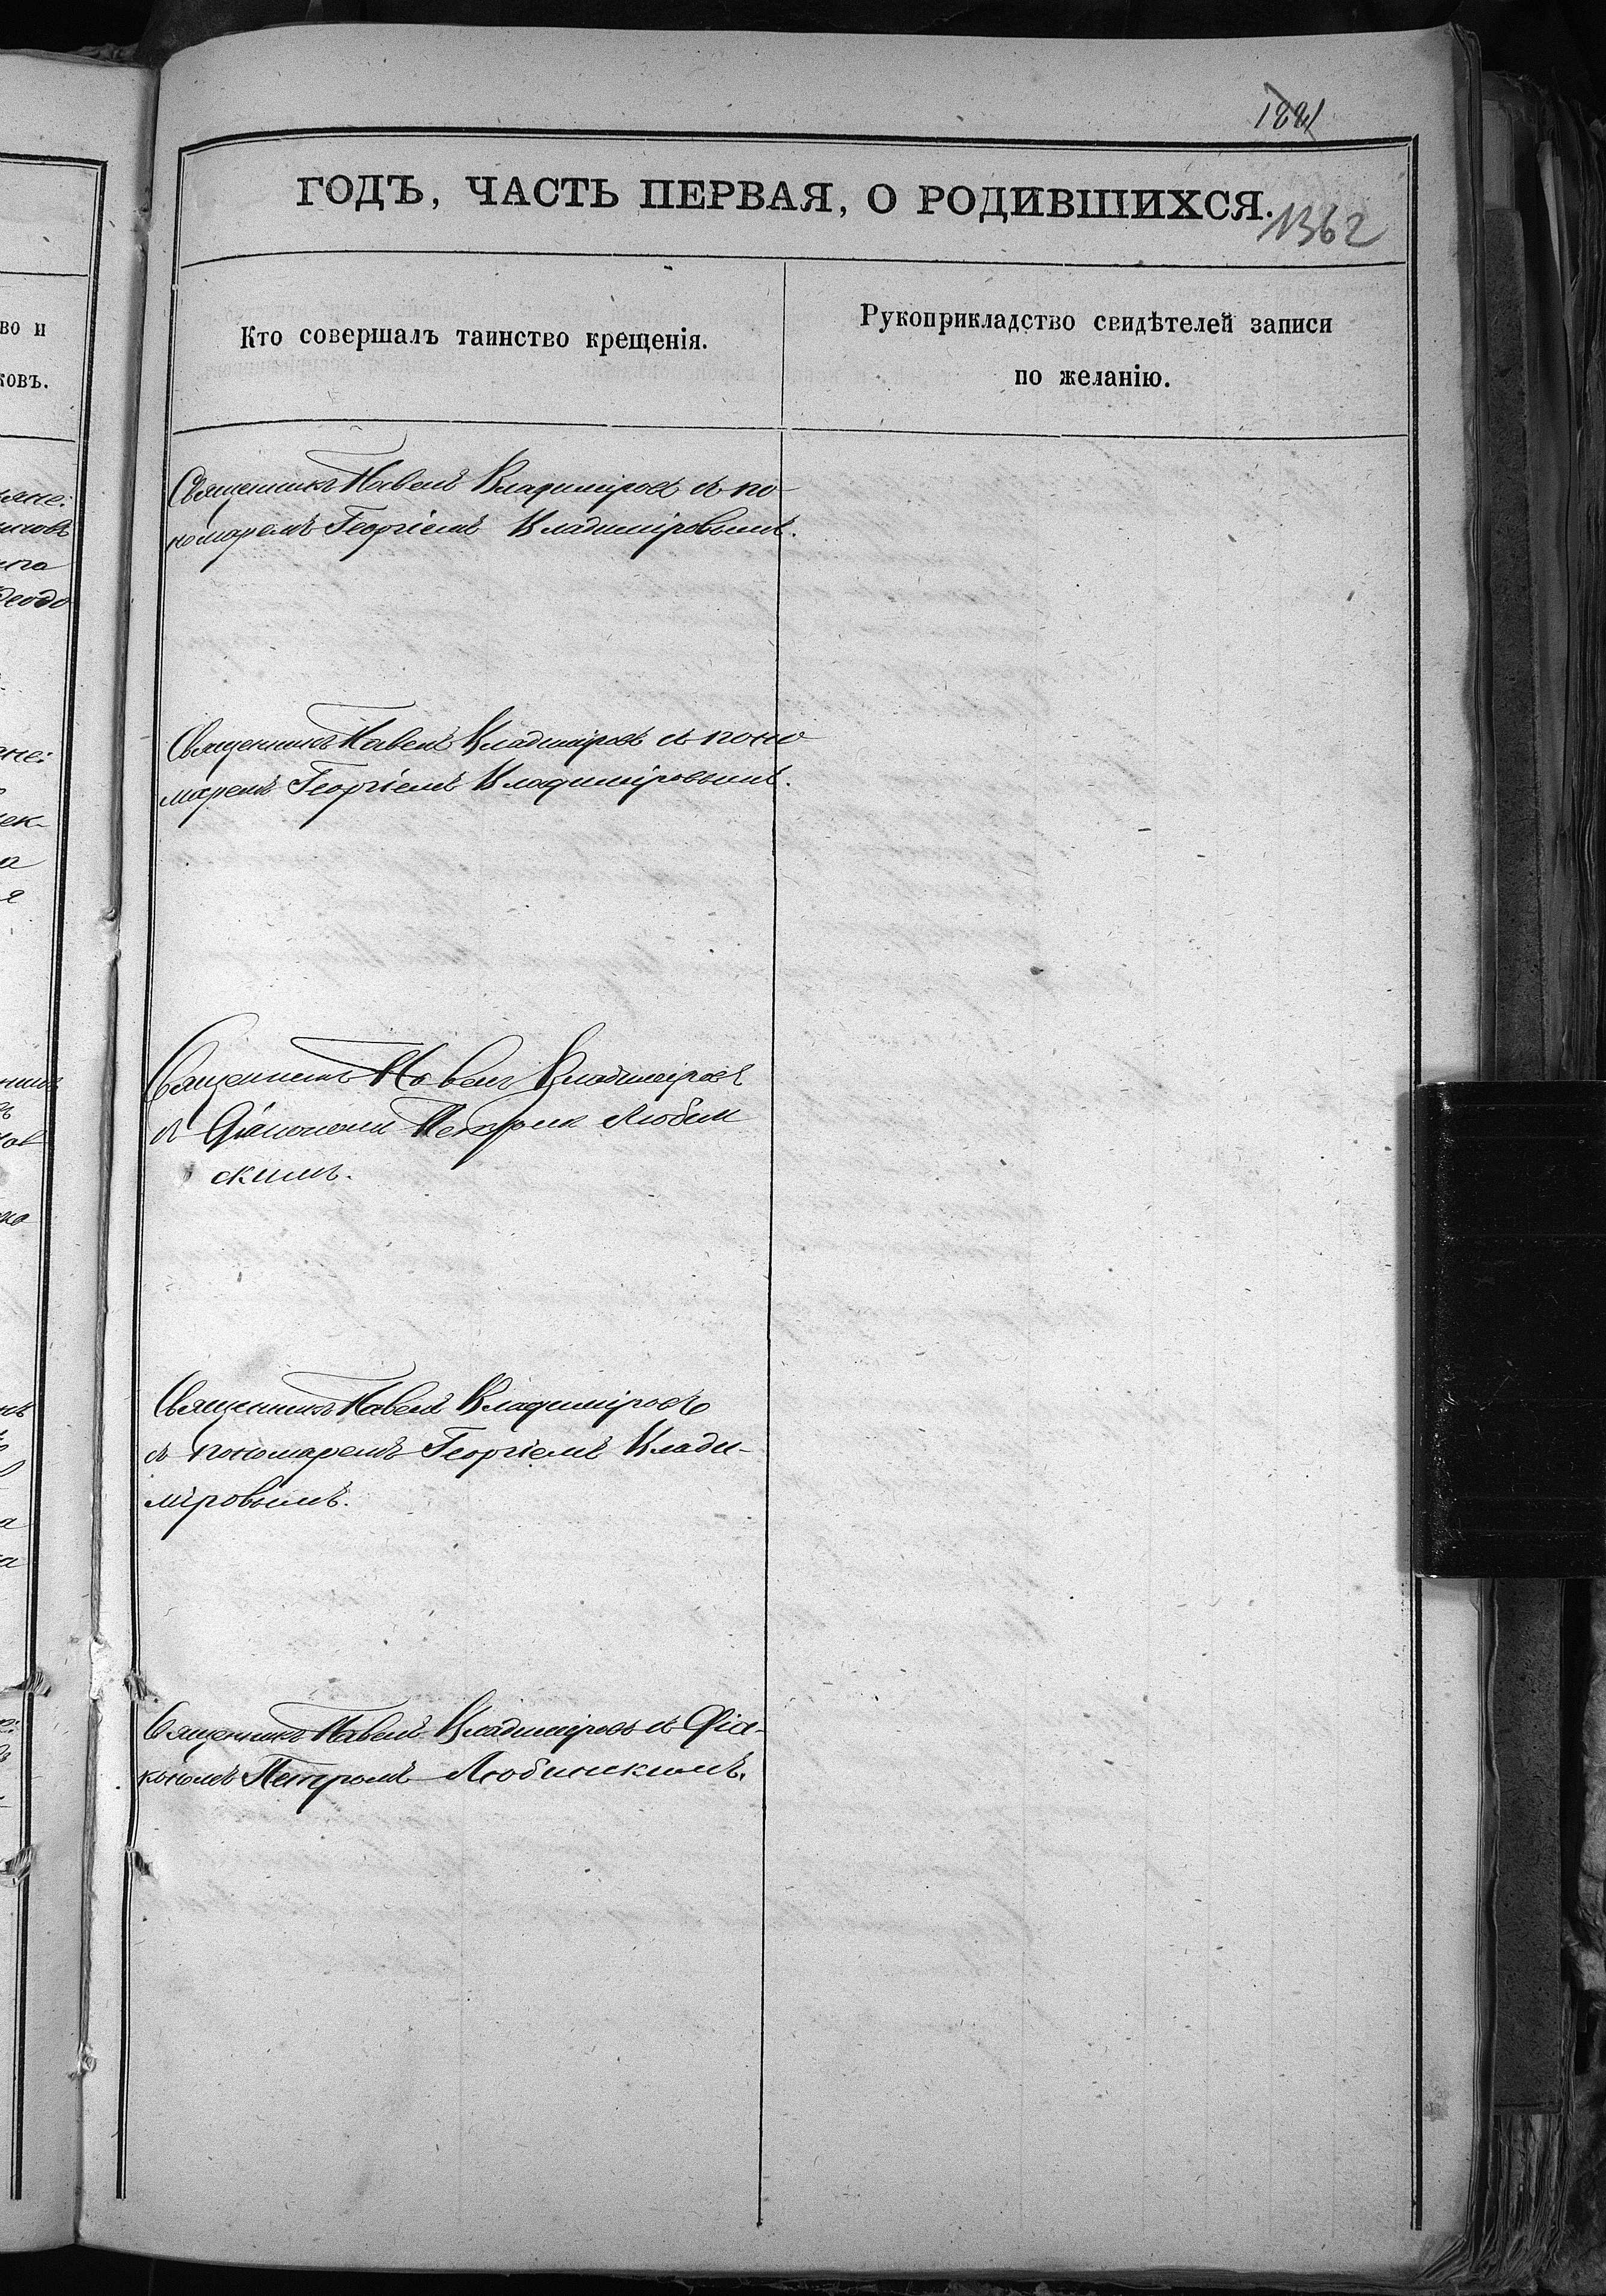 1221
ГОДЪ, ЧАСТЬ ПЕРВАЯ, О РОДИВШИХСЯ.
1362
Кто совершалъ таинство крещенія.
Рукоприкладство свидѣтелей записи
по желанію.
во и
ковъ.
Священникъ Павелъ Владиміровъ съ по-
номаремъ Георгіемъ Владиміровымъ.
Священникъ Павелъ Владиміровъ съ поно-
маремъ Георгіемъ Владиміровымъ.
Священникъ Павелъ Владиміровъ
съ Діакономъ Петромъ Любим
скимъ.
Священникъ Павелъ Владиміровъ
съ пономаремъ Георгіемъ Влади-
міровымъ.
Священникъ Павелъ Владиміровъ съ Діа-
кономъ Петромъ Любимскимъ.